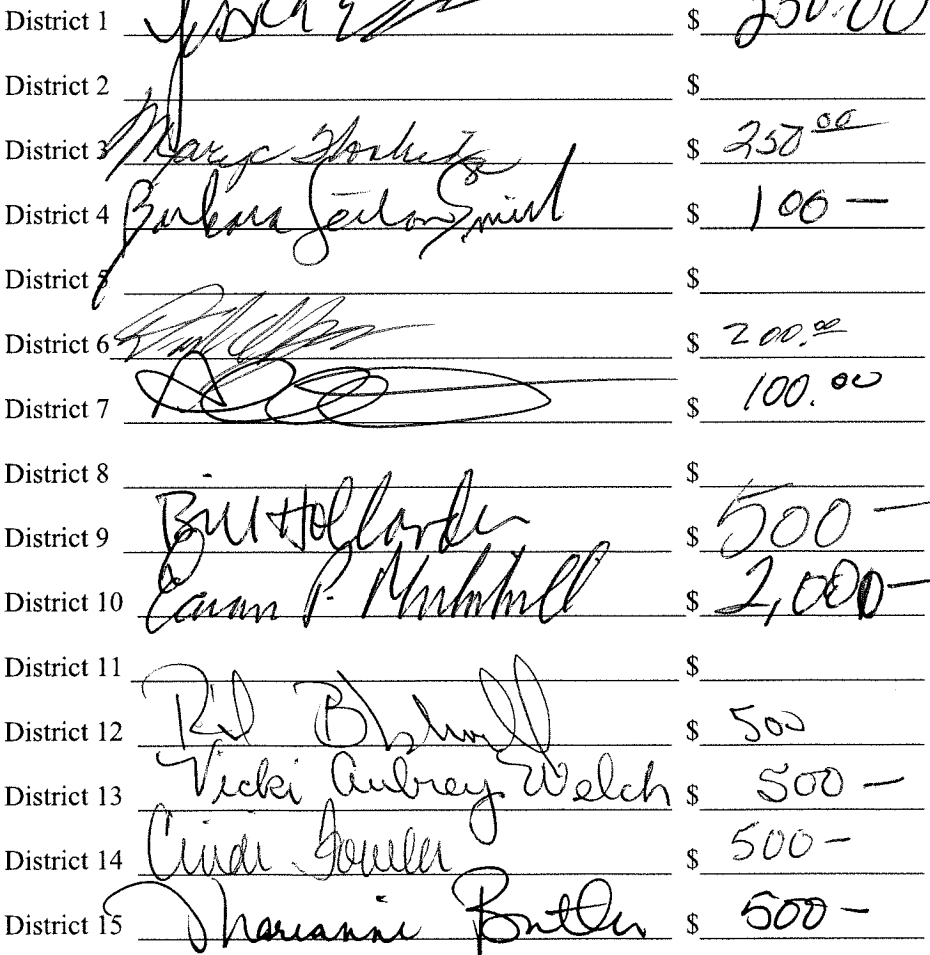 District 1 $ 250.00
District 2 $
District 3 $ 250 00
District 4 Barbara Sexton Smith $ 100 —
District 5 $
District 6 $ 200.00
District 7 $ 100.00
District 8 $
District 9 Bill Hollander $ 500 —
District 10 $ 2,000 —
District 11 $
District 12 $ 500
District 13 Vicki Aubrey Welch $ 500 —
District 14 Cindi Fowler $ 500 —
District 15 Marianne Butler $ 500 —